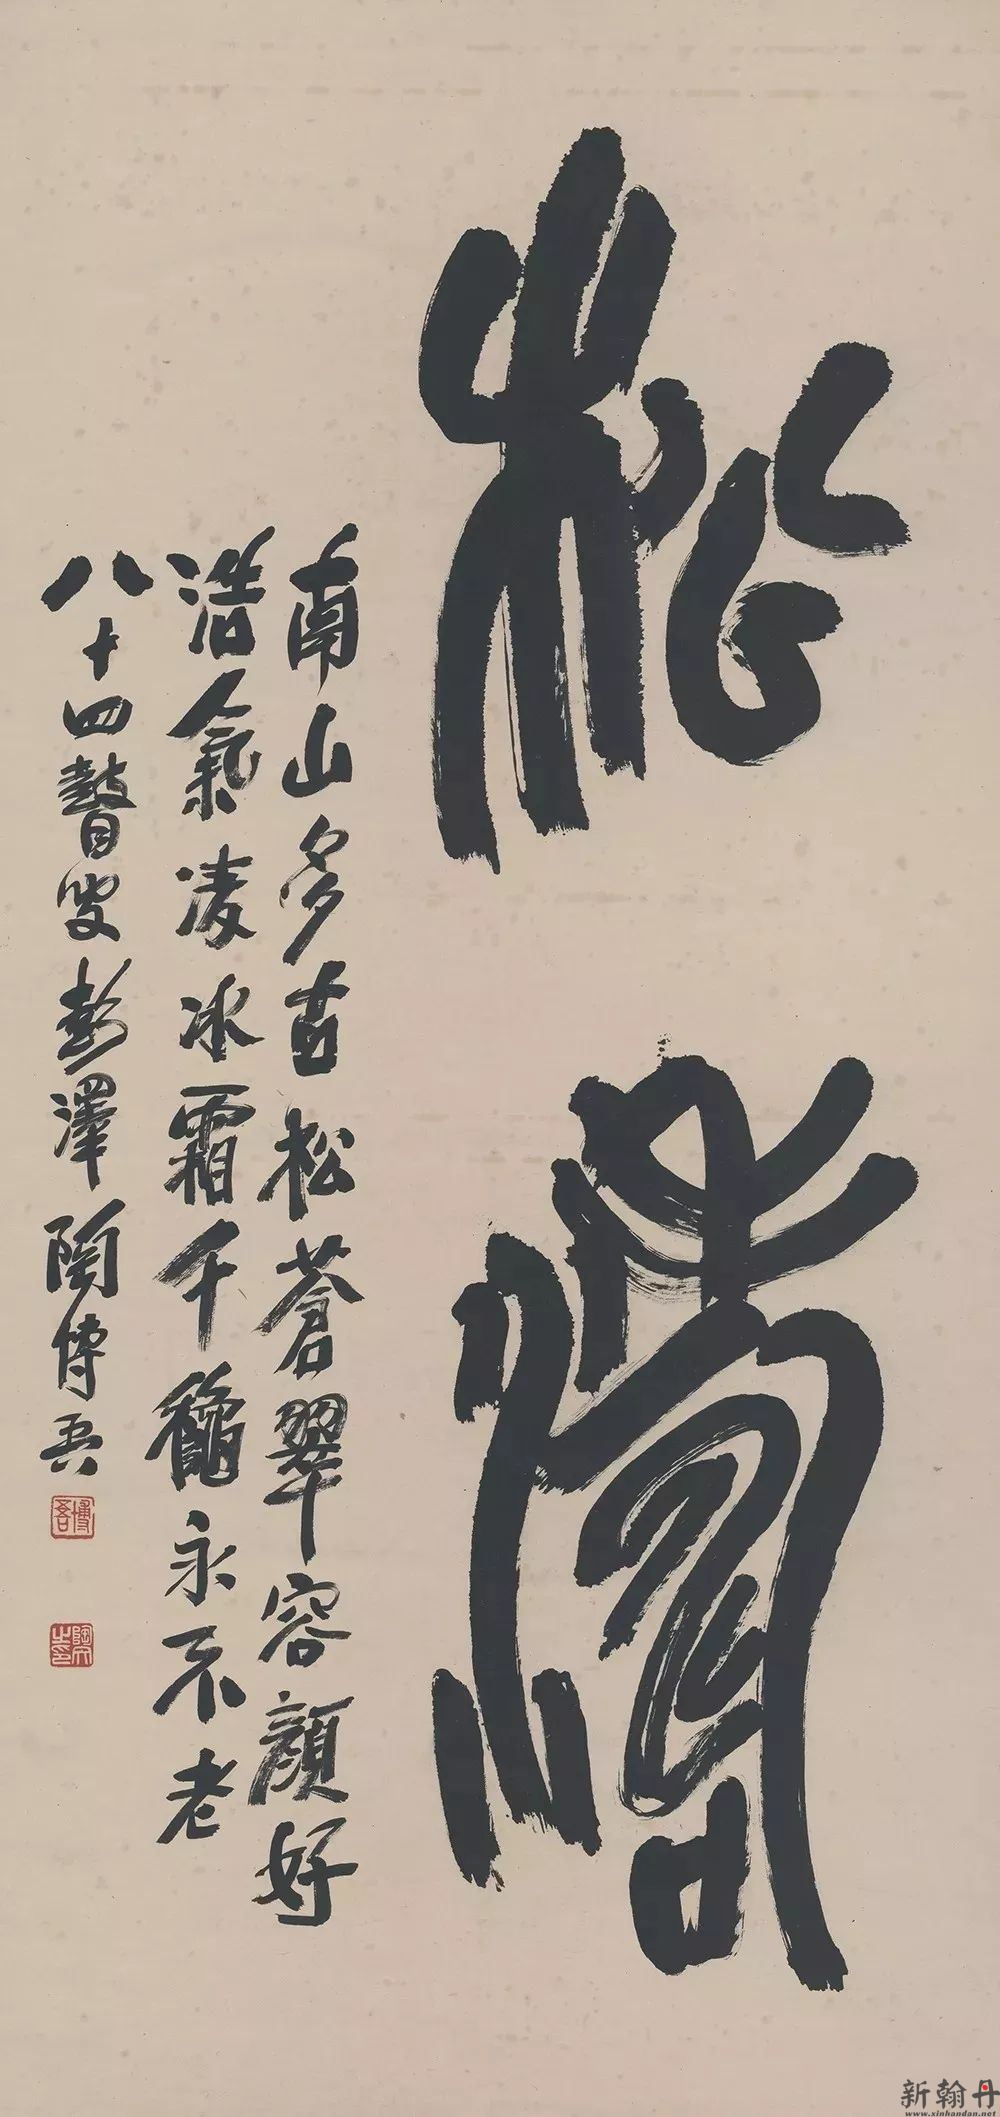 松寿
南山多古松蒼翠容顏好
浩氣凌冰霜千龝永不老
八十四瞽叟彭澤陶博吾
博吾
新翰丹
www.xinhandan.net